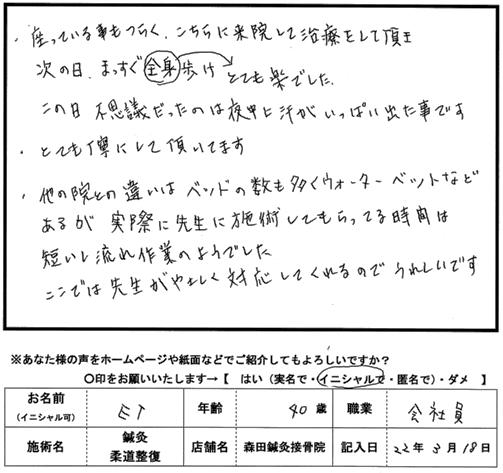 ・座っている事もつらく、こちらに来院して治療をして頂き
次の日、まっすぐ全身歩け とても楽でした。
この日 不思議だったのは夜中に汗がいっぱい出た事です
・とても丁寧にして頂いてます
・他の院との違いは ベッドの数も多くウォーターベットなど
あるが 実際に先生に施術してもらってる時間は
短いし流れ作業のようでした
ここでは先生がやさしく対応してくれるのでうれしいです
※あなた様の声をホームページや紙面などでご紹介してもよろしいですか？
〇印をお願いいたします→【 はい（実名で・イニシャルで・匿名で）・ダメ 】
お名前（イニシャル可） ET 年齢 40歳 職業 会社員
施術名 鍼灸 柔道整復 店舗名 森田鍼灸接骨院 記入日 22年 3月 18日